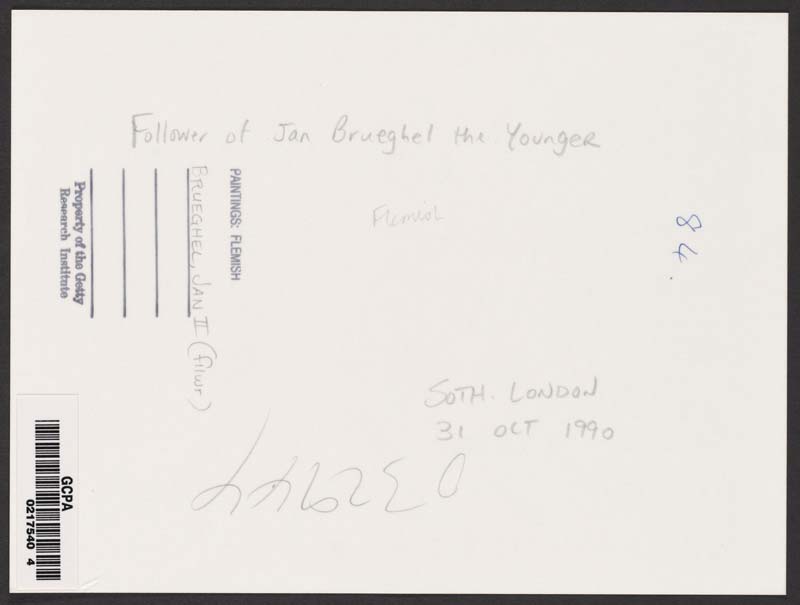 Follower of Jan Brueghel the Younger
Flemish
84.
PAINTINGS: FLEMISH
BRUEGHEL, JAN II (fllwr)
Property of the Getty
Research Institute
SOTH. LONDON
31 OCT 1990
GCPA
0217540 4